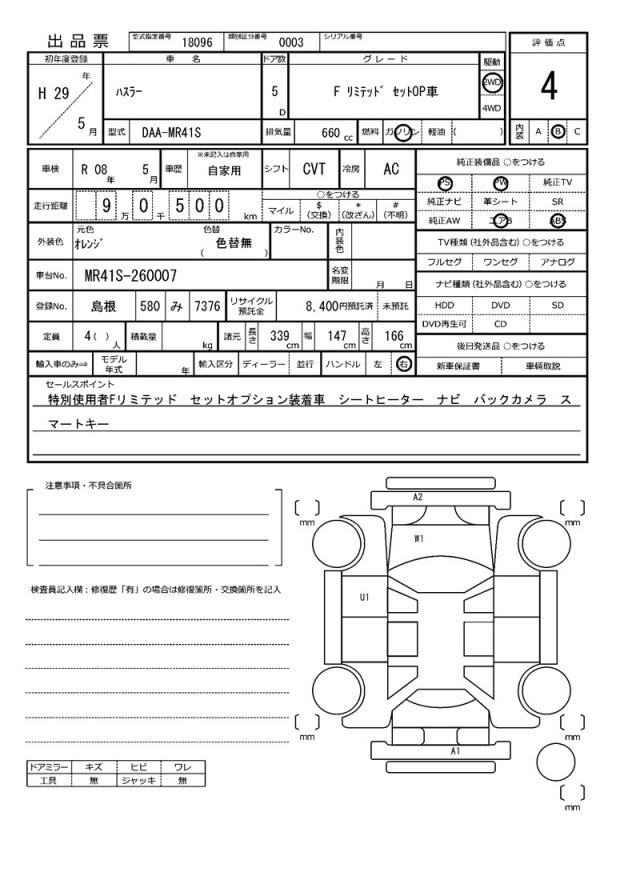 出品票 型式指定番号 18096 類別区分番号 0003 シリアル番号
初年度登録 車名 ドア数 グレード 駆動 評価点
H 29 年 5 月 ハスラー 5 D F リミテッド セットOP車 2WD 4WD 4
型式 DAA-MR41S 排気量 660 cc 燃料 ガソリン 軽油 ( ) 内装 A B C
車検 R 08 年 5 月 車歴 ※未記入は自家用 自家用 シフト CVT 冷房 AC 純正装備品 ○をつける
PS PW 純正TV
走行距離 9 万 0 千 5 0 0 km ○をつける
マイル $ (交換) * (改ざん) # (不明)
純正ナビ 革シート SR
純正AW エアB ABS
外装色 元色 オレンジ 色替 色替無 ( ) カラーNo. 内装色
TV種類 (社外品含む) ○をつける
フルセグ ワンセグ アナログ
車台No. MR41S-260007 名変期限 月 日
ナビ種類 (社外品含む) ○をつける
登録No. 島根 580 み 7376 リサイクル預託金 8,400円預託済 未預託
HDD DVD SD
DVD再生可 CD
定員 4 ( ) 人 積載量 kg 諸元 長さ 339 cm 幅 147 cm 高さ 166 cm
後日発送品 ○をつける
輸入車のみ⇒ モデル年式 年 輸入区分 ディーラー 並行 ハンドル 左 右 新車保証書 車輌取説
セールスポイント
特別使用者Fリミテッド セットオプション装着車 シートヒーター ナビ バックカメラ ス
マートキー
注意事項・不具合箇所
検査員記入欄：修復歴「有」の場合は修復箇所・交換箇所を記入
A2
mm mm
W1
U1
mm mm
A1
mm
ドアミラー キズ ヒビ ワレ
工具 無 ジャッキ 無